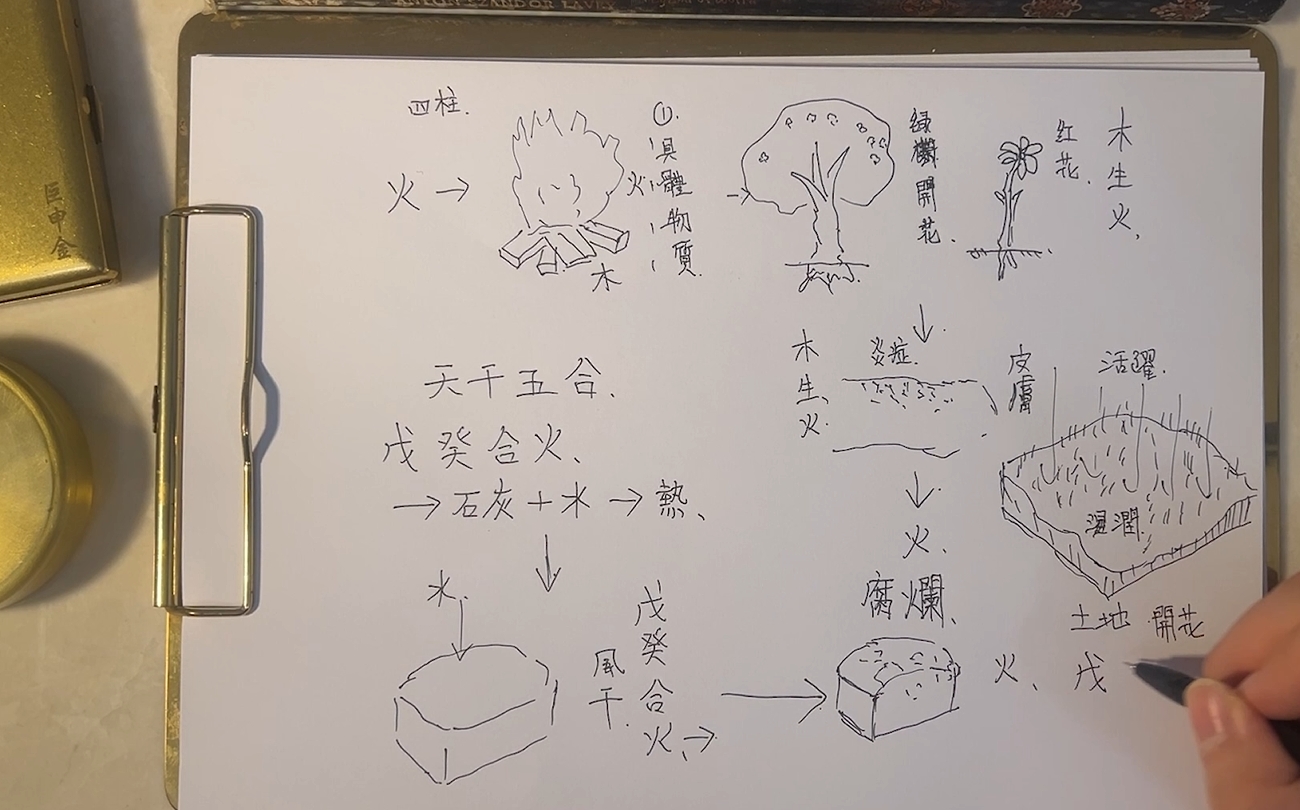 四柱.
火→
火
木
①.
具體物質.
綠樹開花.
红花.
木生火,
天干五合.
戊癸合火、
→石灰+水→熱、
水.
風干.
戊癸合火、→
木生火.
炎症.
皮膚
活躍.
濕潤.
土地 開花
火.
腐爛、
火、戊
巨申金